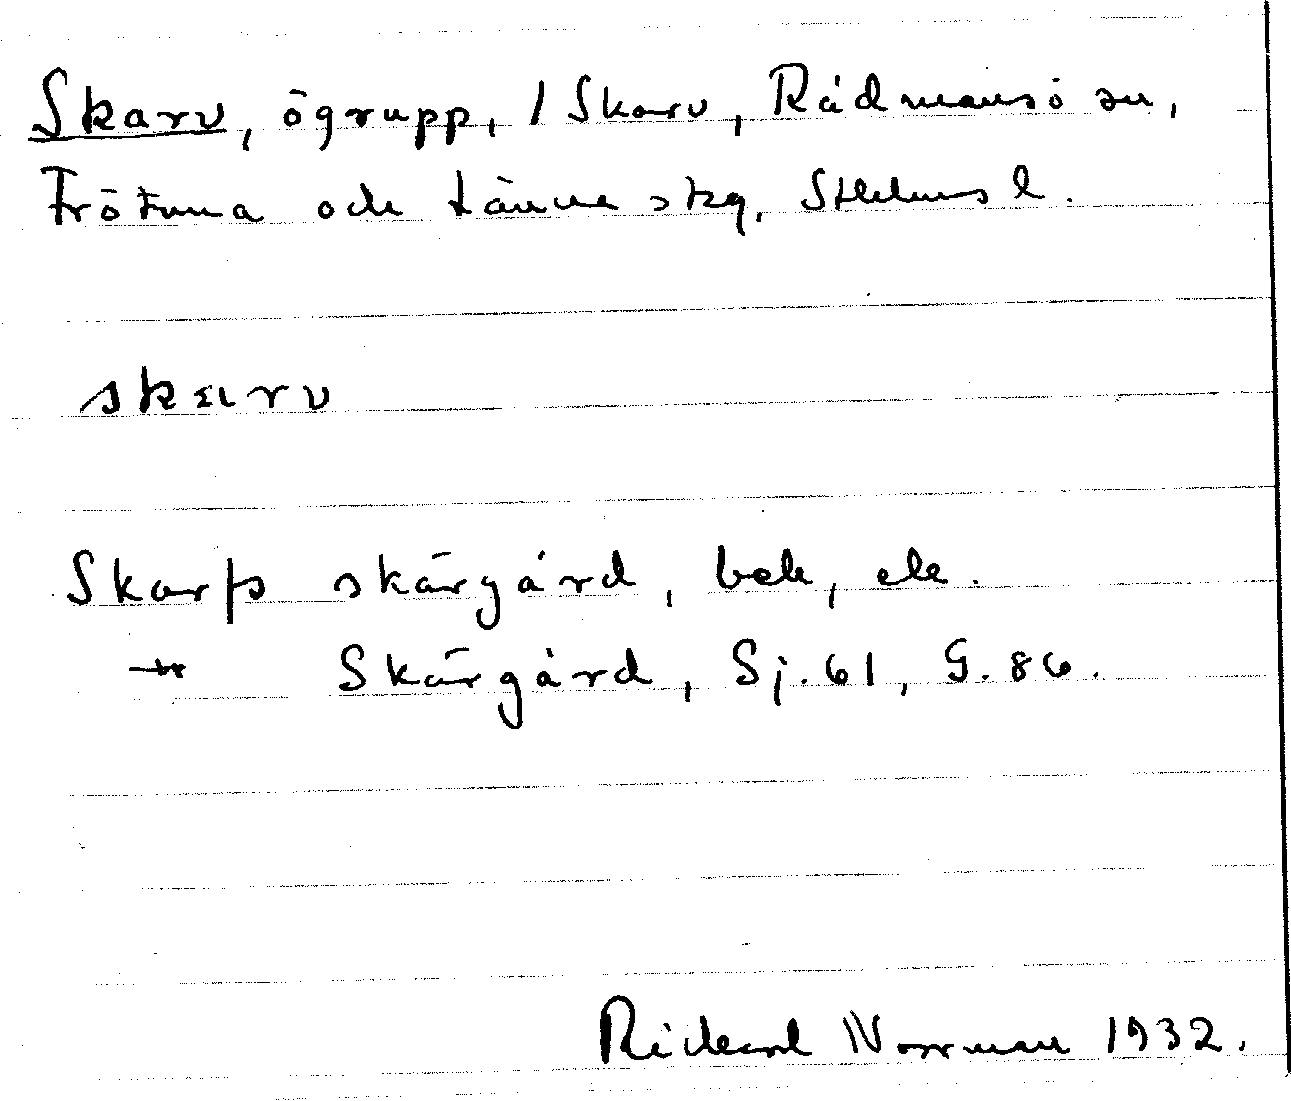 Skarv, ögrupp, / Skarv, Rådmansö sn,
Frötuna och Länna skg, Sthlms l.
skarv
Skarfs skärgård, bek, ek.
Skärgård, Sj. 61, G. 86.
Rickard Norrman 1932.